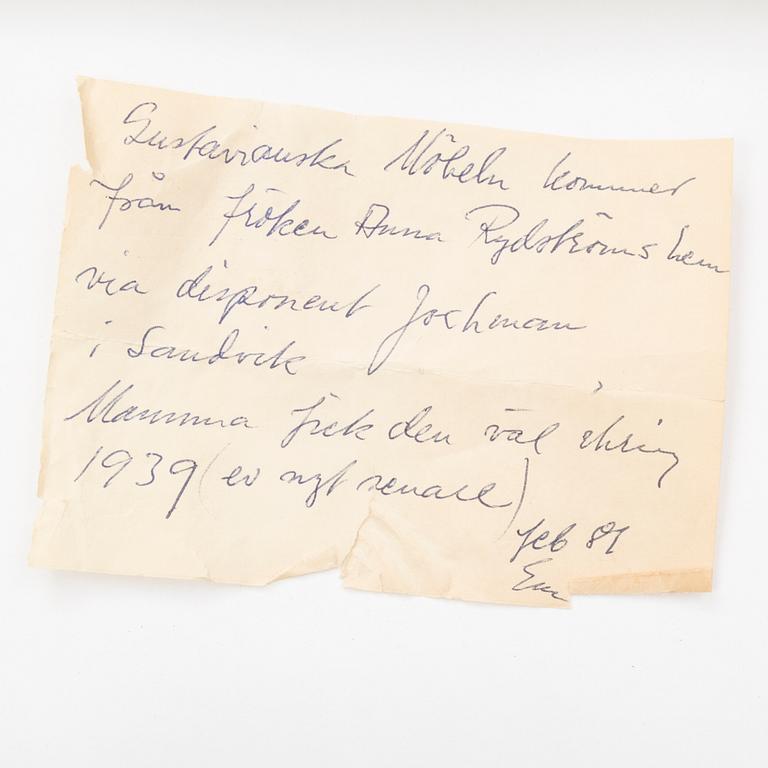 Gustavianska Möbeln kommer
från fröken Anna Rydströms hem
via disponent Jochman
i Sandvik
Mamma fick den väl ikring
1939 (ev ngt senare)
feb 81